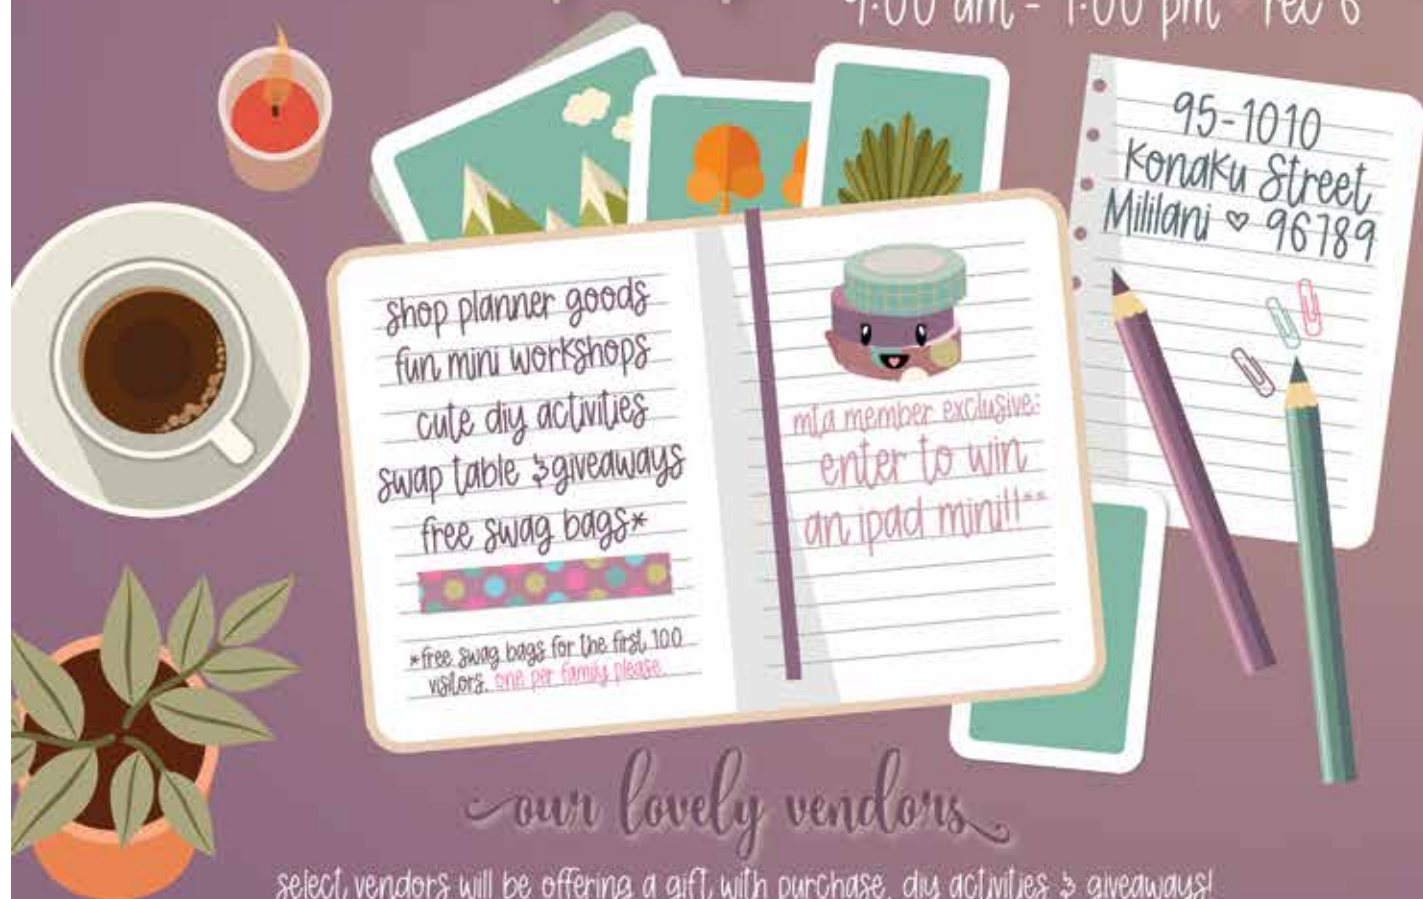 9:00 am - 1:00 pm ♥ rec 6
95-1010
Konaku Street
Mililani ♡ 96789
shop planner goods
fun mini workshops
cute diy activities
swap table & giveaways
free swag bags*
*free swag bags for the first 100
visitors. one per family please.
mta member exclusive:
enter to win
an ipad mini!!**
our lovely vendors
select vendors will be offering a gift with purchase, diy activities & giveaways!